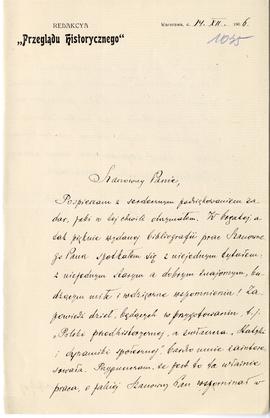 REDAKCYA
„Przeglądu Historycznego"
Warszawa, d. 14. XII. 190 6.
1035
Szanowny Panie,
Pospieszam z serdecznym podziękowaniem za
dar, jaki w tej chwili otrzymałem. W bogatej, a
tak pięknie wydanej bibliografii prac Szanowne-
go Pana spotkałem się z niejednym tytułem,
z niejednym starym a dobrym znajomym, bu-
dzącym miłe i wdzięczne wspomnienia! Za-
powiedź dzieł, będących w przygotowaniu t. j.
„Polski przedhistorycznej", a zwłaszcza „Statyki
i dynamiki społecznej", bardzo mnie zaintere-
sowała. Przypuszczam, że jest to ta właśnie
praca, o jakiej Szanowny Pan wspominał w